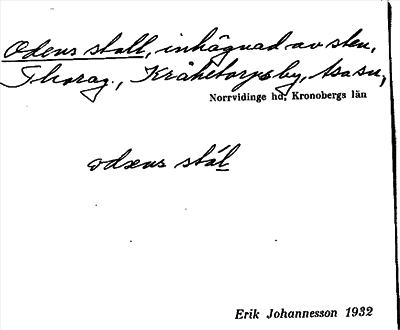 Odens stall, inhägnad av sten,
Thorag., Kråketorps by, Asa sn,
Norrvidinge hd, Kronobergs län
odæns stál
Erik Johannesson 1932